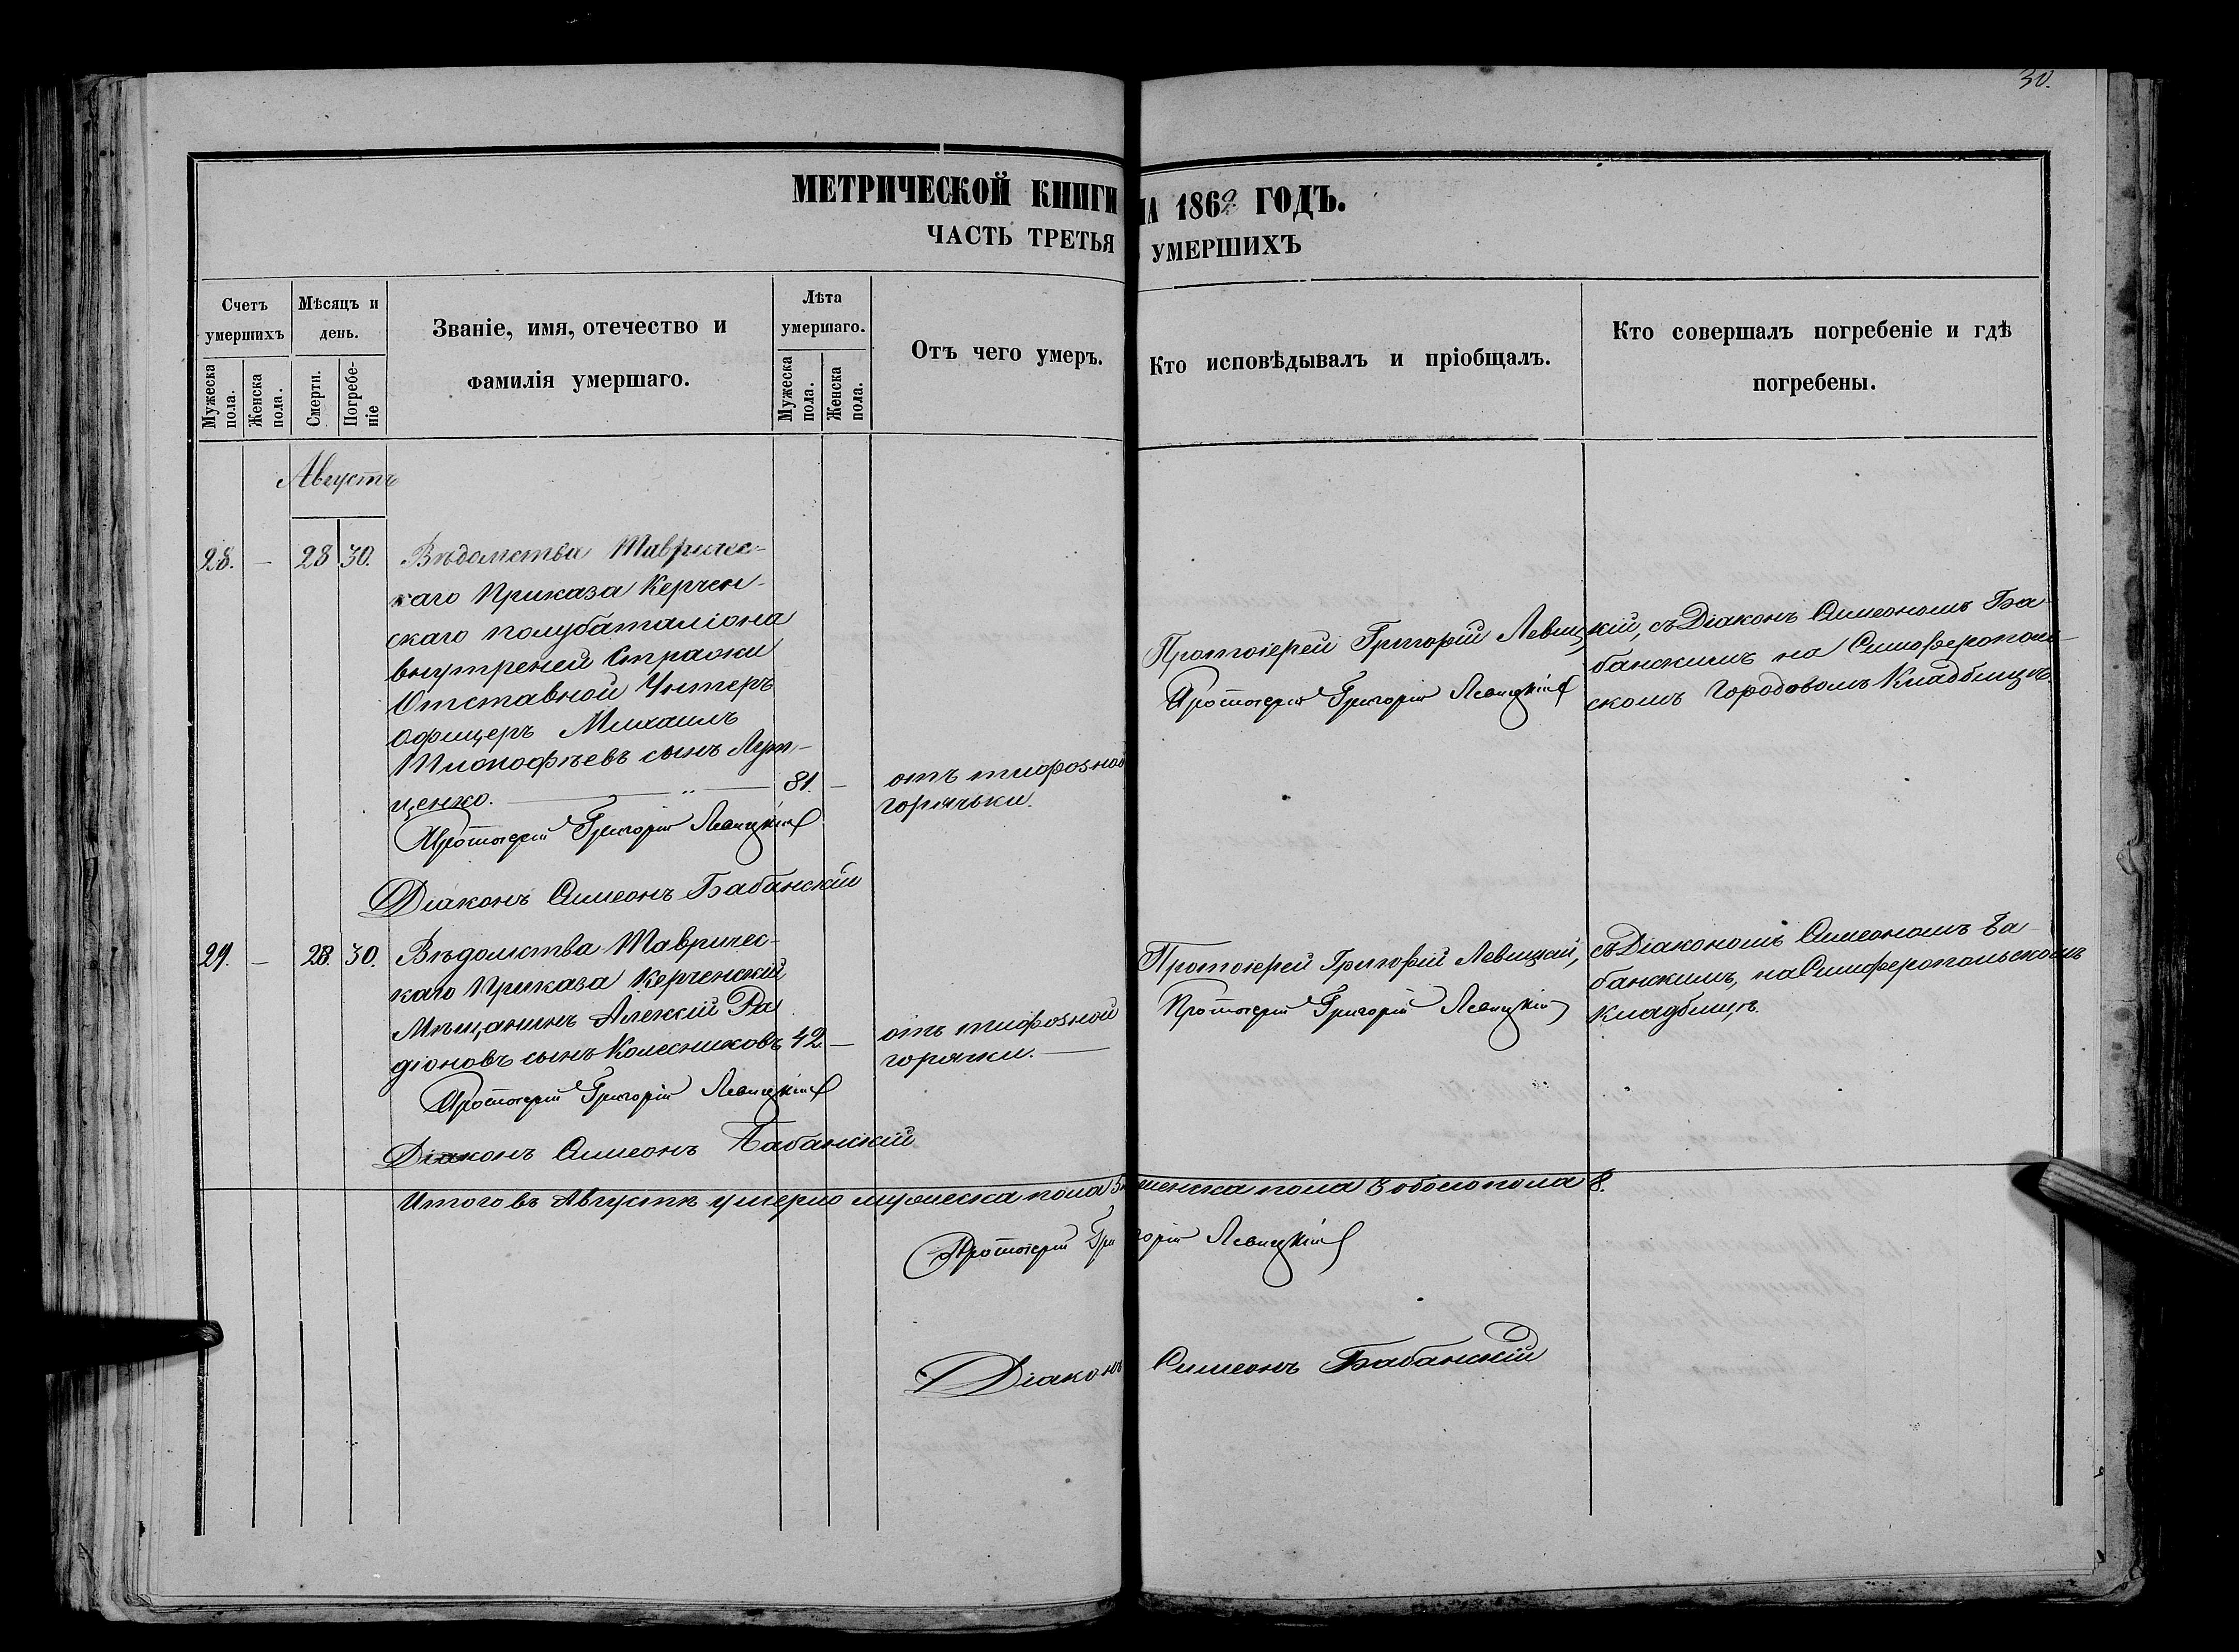 30.
МЕТРИЧЕСКОЙ КНИГИ НА 1862 ГОДЪ.
ЧАСТЬ ТРЕТЬЯ УМЕРШИХЪ
Счетъ умершихъ
Мужеска пола.
Женска пола.
Мѣсяцъ и день.
Смерти.
Погребе-ніе
Званіе, имя, отечество и
фамилія умершаго.
Лѣта умершаго.
Мужеска пола.
Женска пола.
Отъ чего умеръ.
Кто исповѣдывалъ и пріобщалъ.
Кто совершалъ погребеніе и гдѣ
погребены.
Августъ
28. — 28 30. Вѣдомства Тавричес-
каго Приказа Керчен-
скаго полубаталіона
внутреней Стражи
Отставной Унтеръ
Офицеръ Михаилъ
сынъ
ценко. — 81. —
отъ тифозной
горячьки.
Протоіерей Григорій Левицкій,
Протоіерей Григорій Левицкій
съ Діаконъ Симеономъ Ба-
банскимъ на Симферополь-
скомъ Городовомъ Кладбищѣ.
Протоіерей Григорій Левицкій
Діаконъ Симеонъ Бабанскій
29. — 28. 30. Вѣдомства Тавричес-
каго Приказа Керченскій
Мѣщанинъ Алекѣй Ра
діоновъ сынъ Колесниковъ 42. —
отъ тифозной
горячки. —
Протоіерей Григорій Левицкій,
Протоіерей Григорій Левицкій
съ Діакономъ Симеономъ Ба-
банскимъ, на Симферопольскомъ
Кладбищѣ.
Протоіерей Григорій Левицкій
Діаконъ Симеонъ Бабанскій
Итого въ Августѣ умерло мужеска пола 5 женска пола 3 обоего пола 8.
Протоіерей Григорій Левицкій
Діаконъ Симеонъ Бабанскій